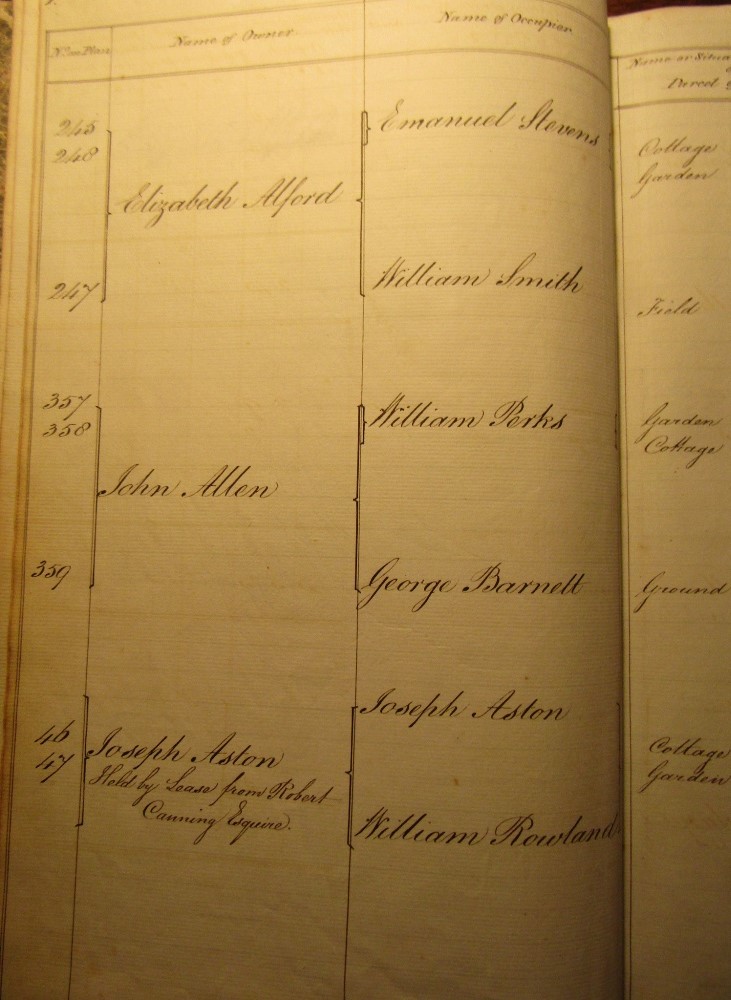 No. on Plan
Name of Owner.
Name of Occupier
Name or Situa
Parcel
245
248
Emanuel Stevens
Cottage
Garden
Elizabeth Alford
247
William Smith
Field
357
358
William Perks
Garden
Cottage
John Allen
359
George Barnett
Ground
Joseph Aston
46
47
Joseph Aston
Held by Lease from Robert
Canning Esquire.
Cottage
Garden
William Rowland